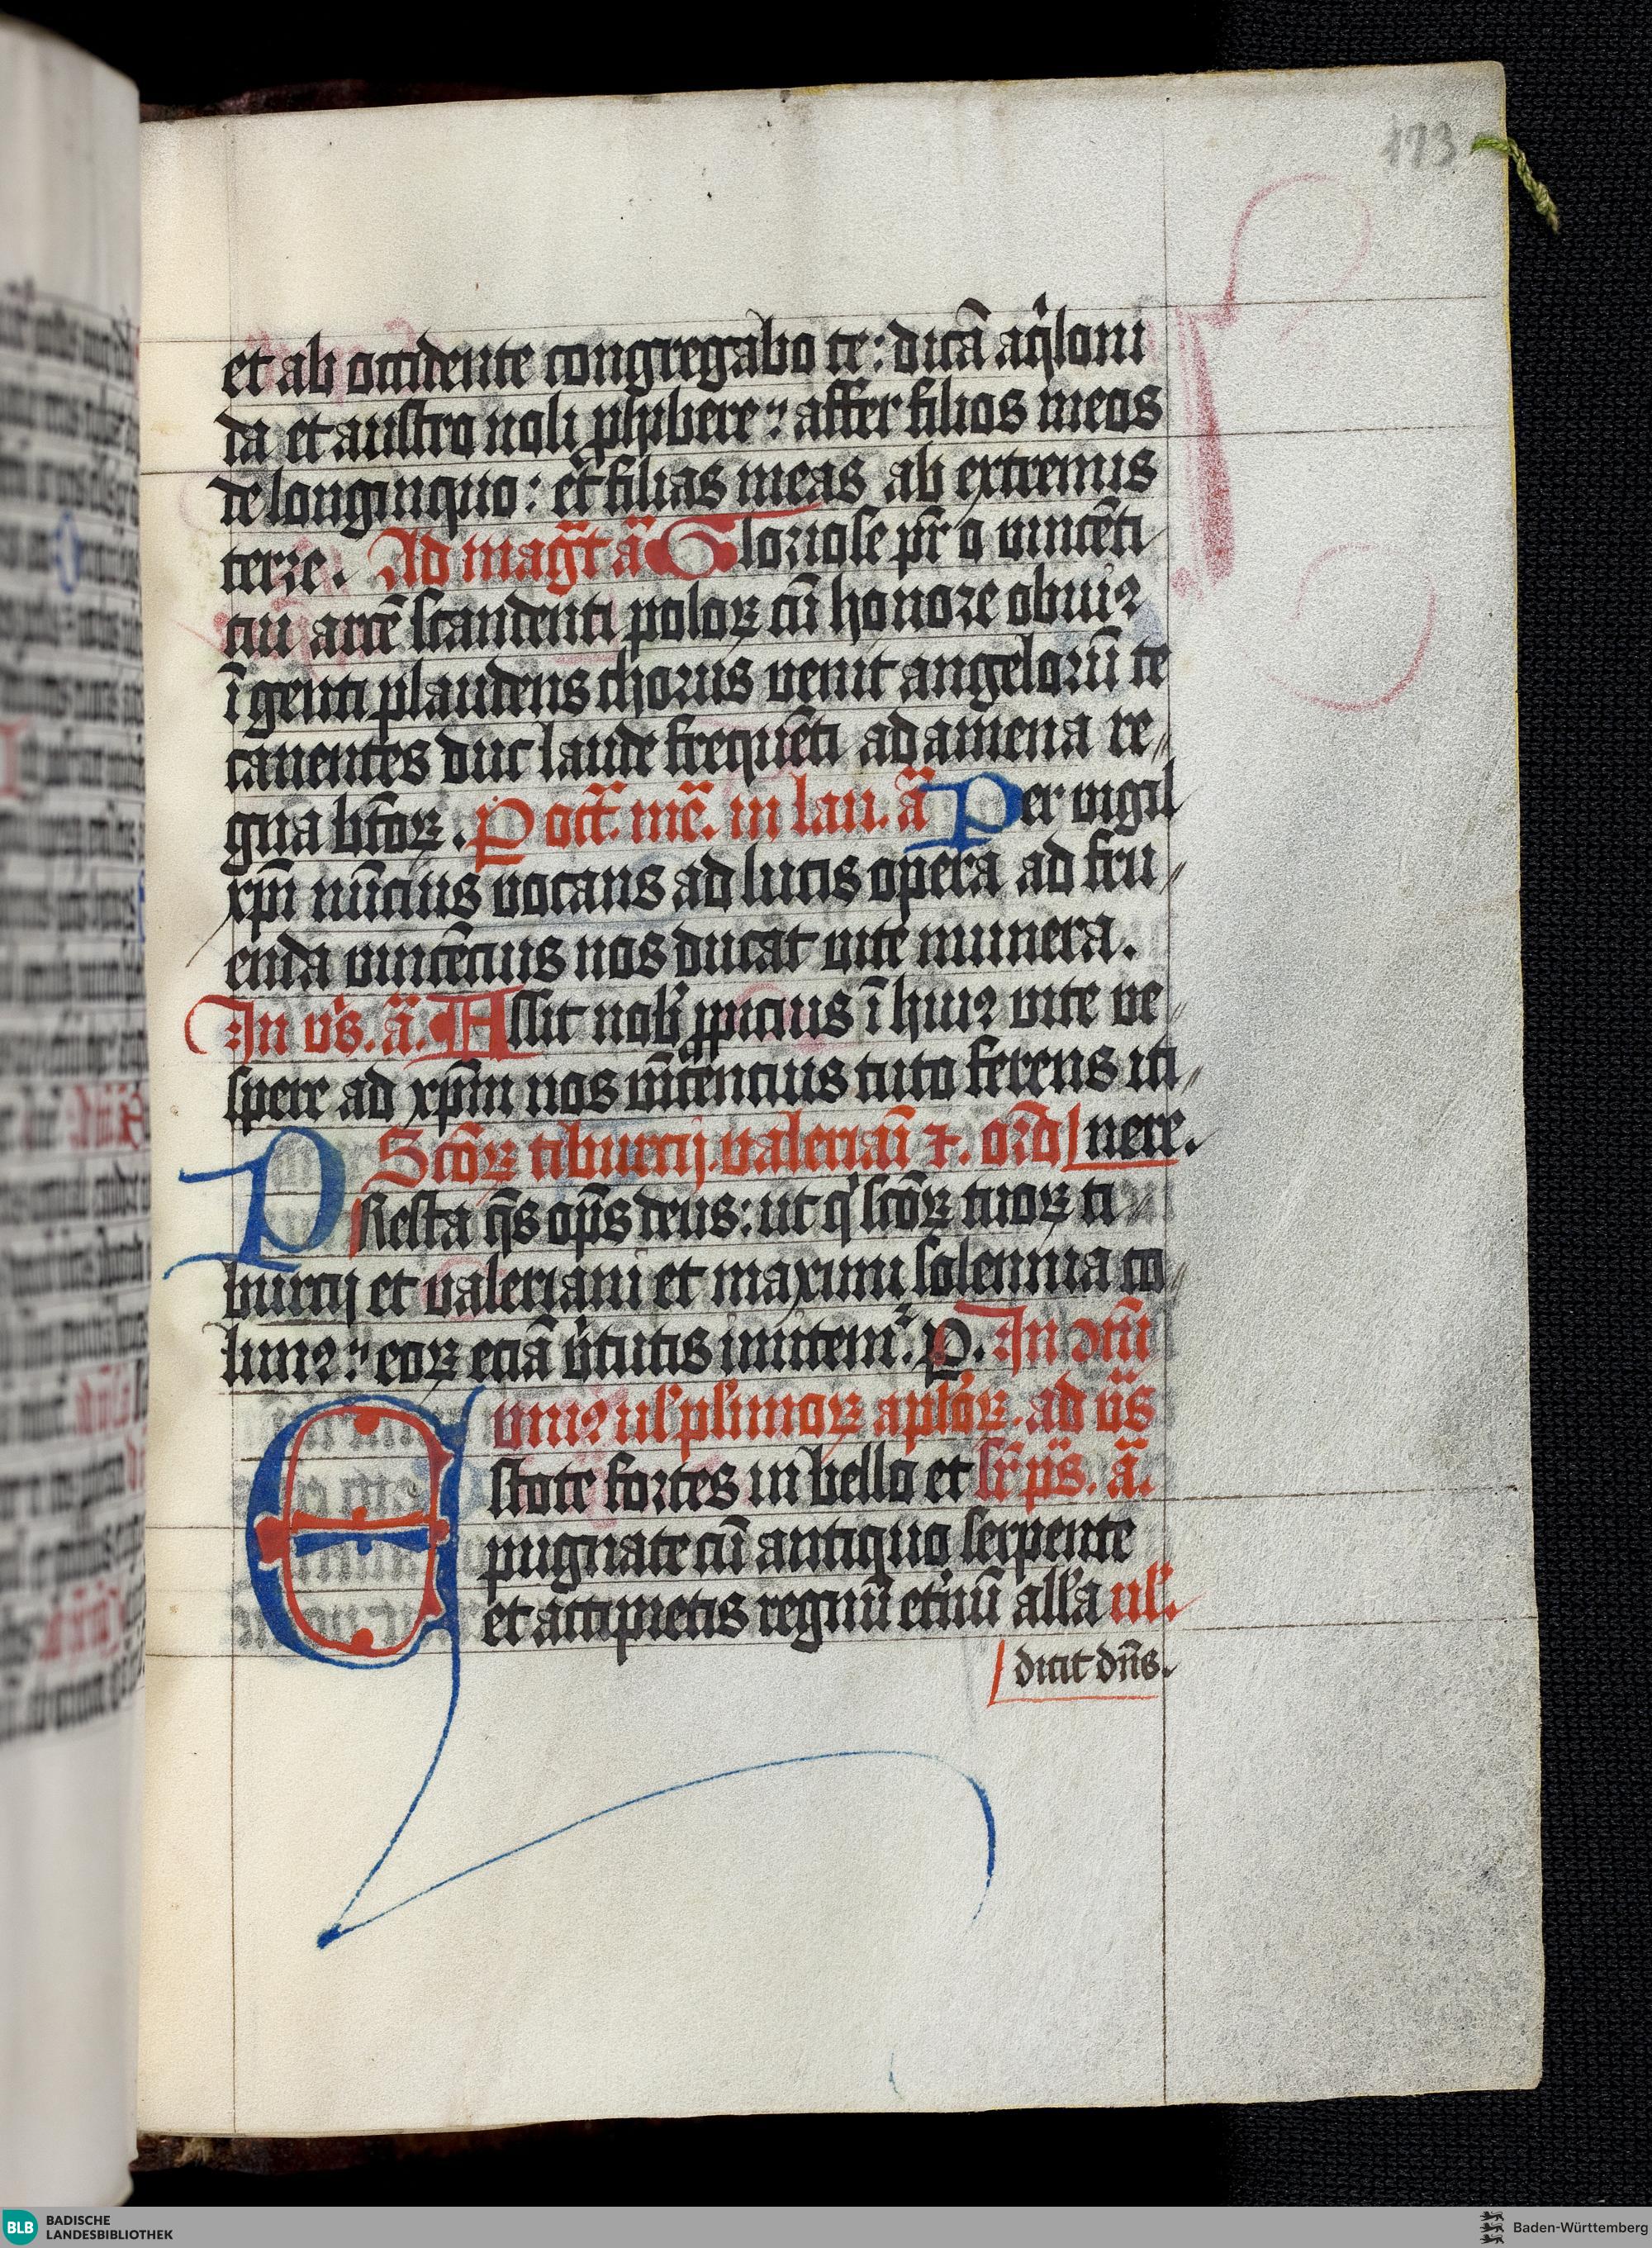 173
et ab occidente congregabo te: dicā aq̇loni
da et austro noli ꝓhibere: affer filios meos
de longinquo: et filias meas ab extremis
terre. Ad mag̃t ā Gloriose pr̄ o vincēti
ciū arcē scandenti poloꝝ cū honore obuiꝰ
īgenti plaudens chorus venit angelorū te
canentes duc laude frequēti ad amena re
gna btōꝝ. P oct̄. mē. in lau. ā Per vigil
xpm̄ nūcius vocans ad lucis opera ad fru
enda vincēcius nos ducat vite munera.
In v̓s. ā. Assit nob̓ ꝓpicius ī huiꝰ vite ve
spere ad xpm̄ nos vīcencius tuto ferens iti
Sctōꝝ tiburcij. valeriāi ⁊. orō nere.
Presta q̄s op̄s deus: ut q̓ sctōꝝ tuoꝝ ti
burcij et valeriani et maximi solennia co
limꝰ: eoꝝ eciā v̓tutis imitemr̃. P. In ↄcū
vniꝰ ul̓ pl̓imoꝝ aplōꝝ. ad v̄s
Estote fortes in bello et sr̄ ps̄. ā.
pugnate cū antiquo serpente
et accipietis regnū et̓nū all̓a ul̓.
dicit dn̄s.
BLB BADISCHE
LANDESBIBLIOTHEK
Baden-Württemberg